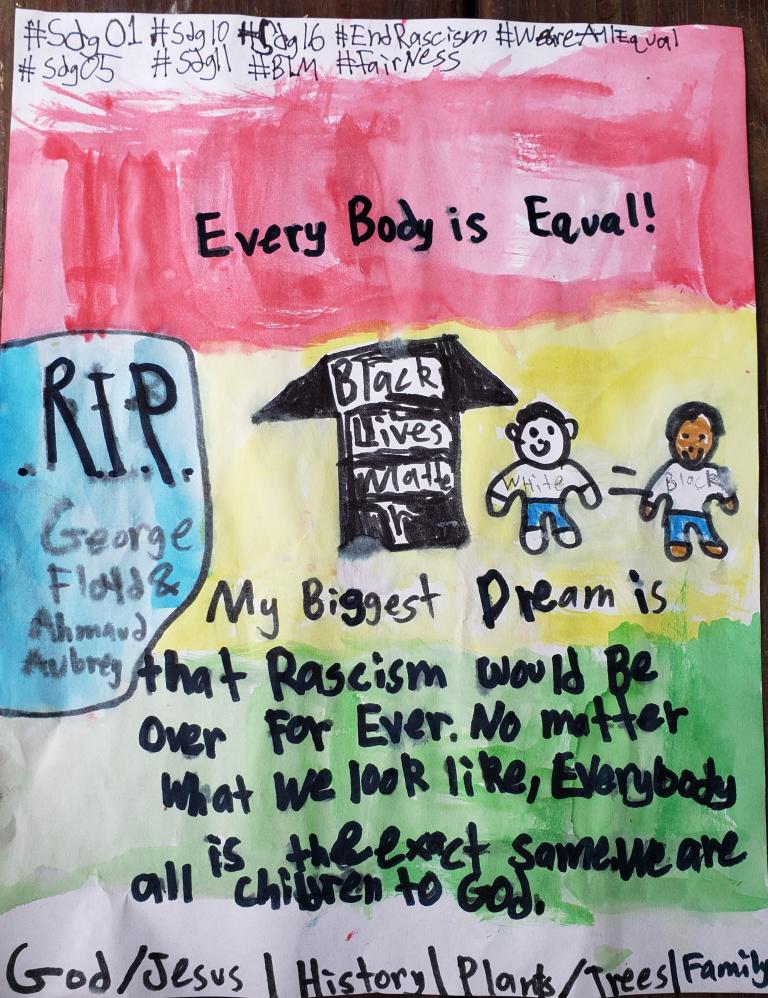 #Sdg01 #Sdg10 #Sdg16 #EndRascism #WeareAllEqual
#Sdg05 #Sdg11 #BLM #FairNess
Every Body is Equal!
.R.I.P.
George
Floyd &
Ahmaud
Aubrey
Black
Lives
Matte
r
White = Black
My Biggest Dream is
that Rascism would Be
Over For Ever. No matter
What We look like, Everybody
is the exact same. We are
all children to God.
God/Jesus | History | Plants/Trees | Family